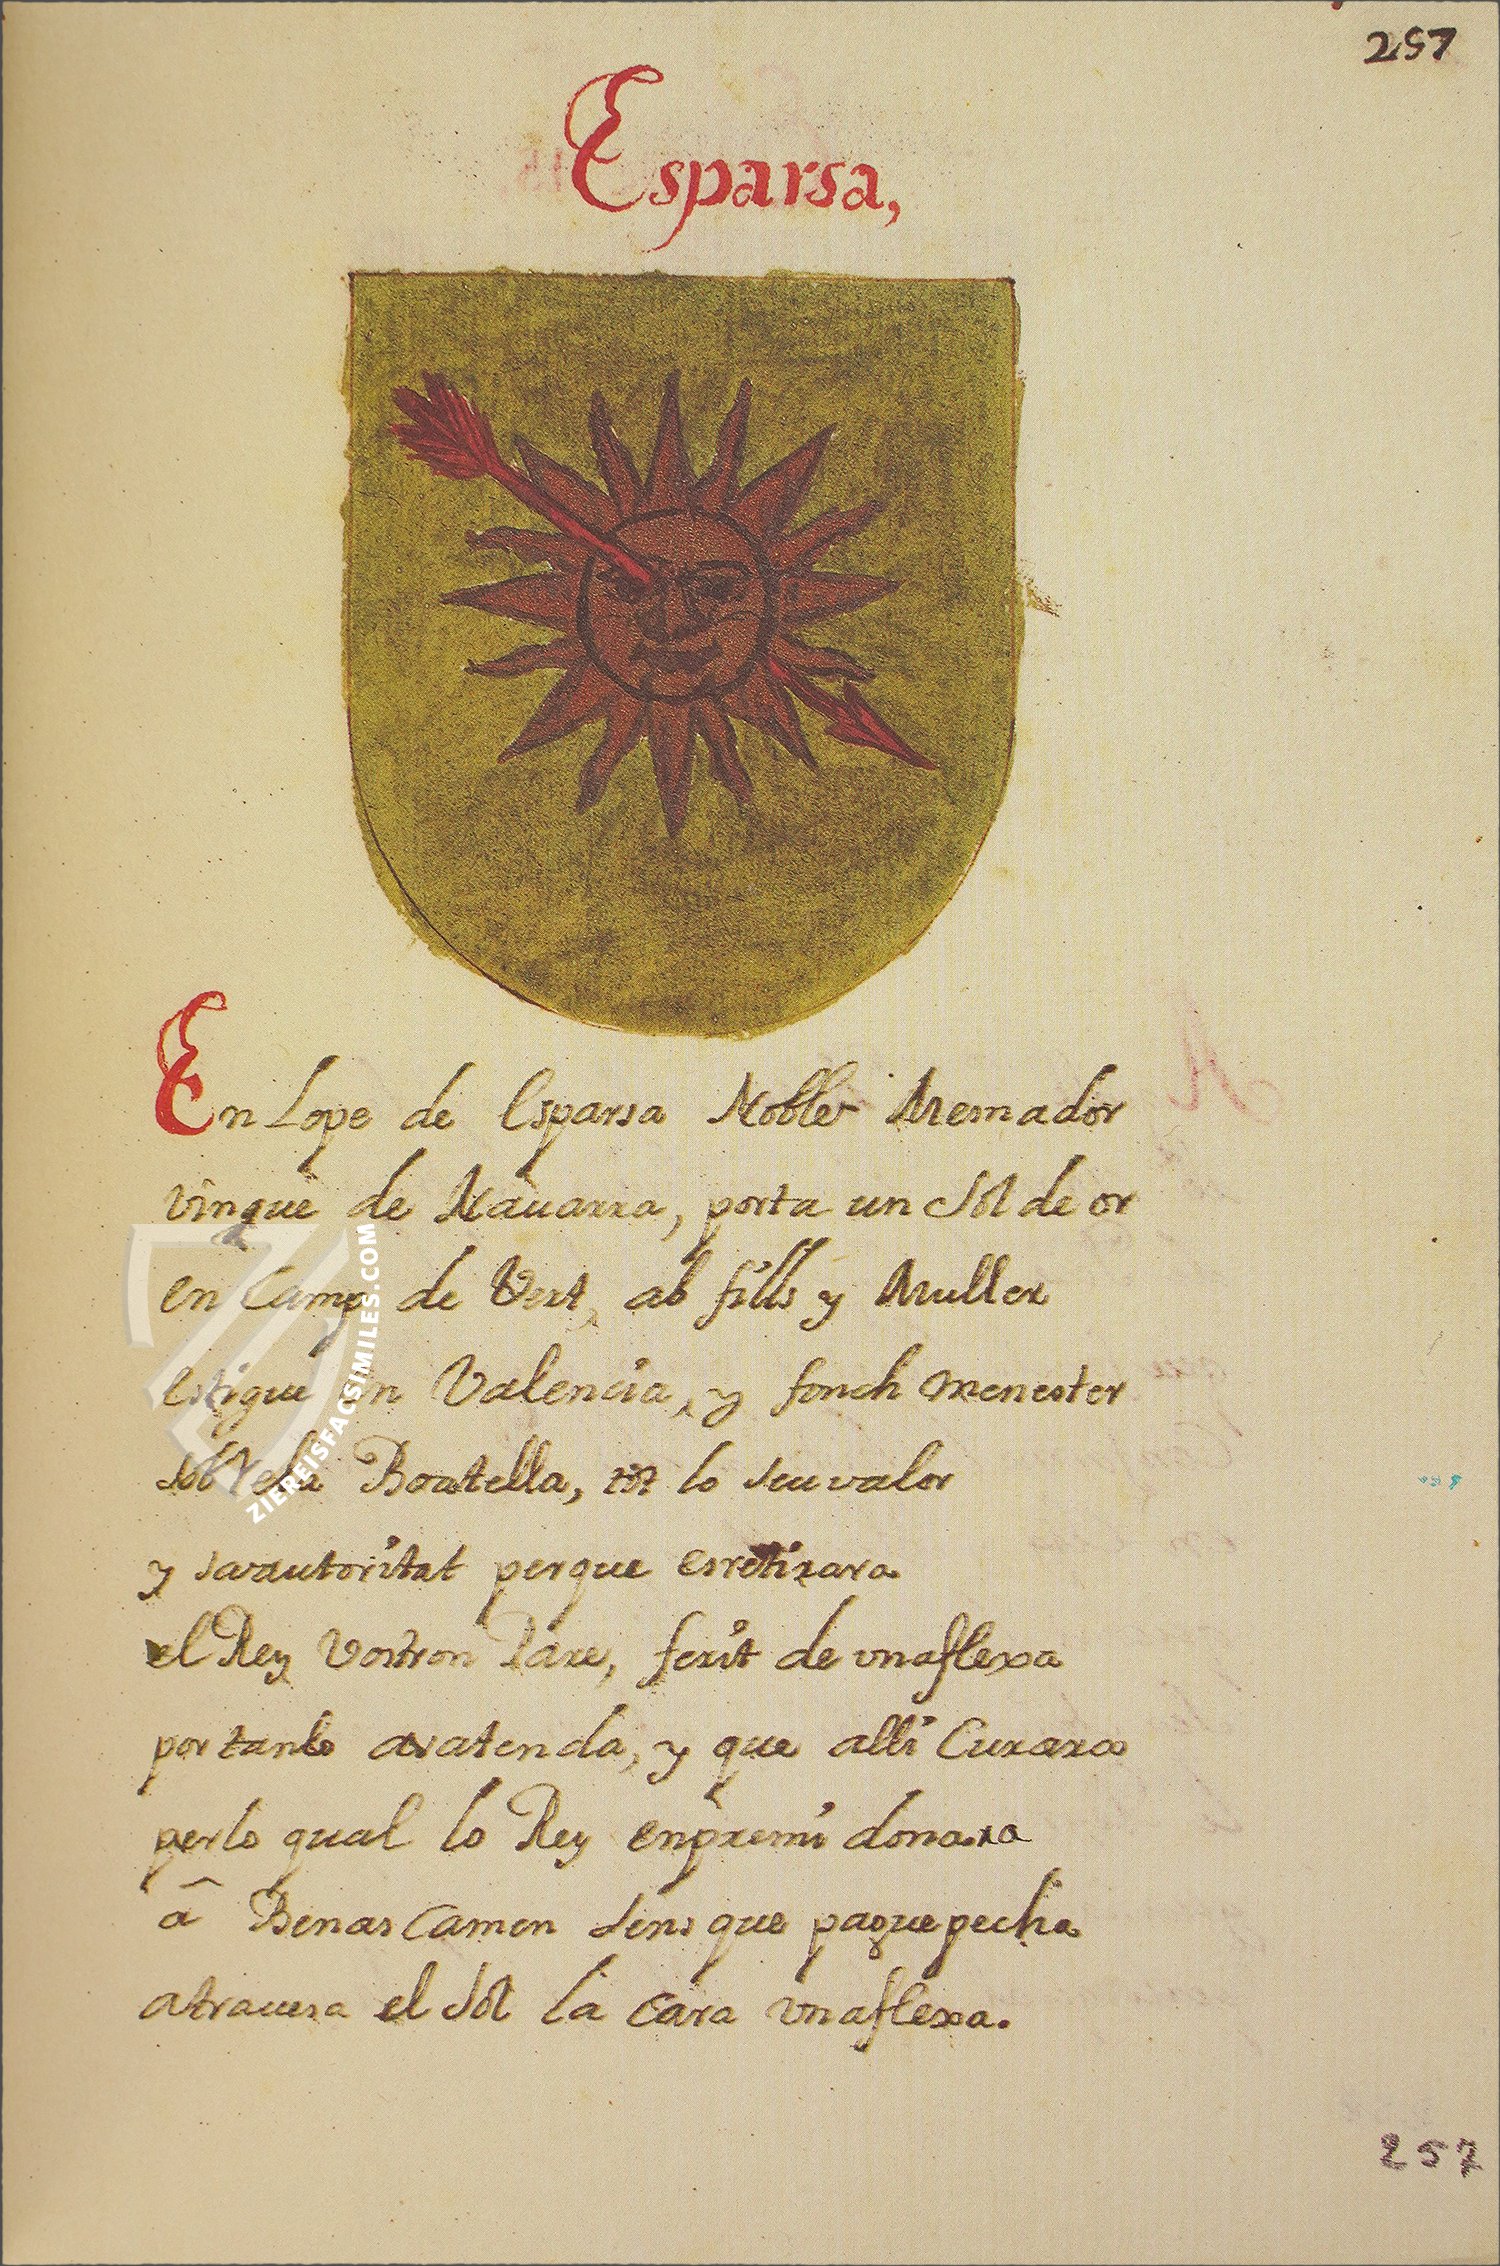 257
Esparsa,
En Lope de Esparsa Noble Mesnador
vingue de Nauarra, porta un Sol de or
en Camp de Vert, ab fills y Muller
estigue en Valencia, y fonch menester
sobre la Boatella, tot lo seu valor
y sa autoritat perque es retirara
el Rey Vostron Pare, ferit de una flexa
portanlo a sa tenda, y que alli Curara
per lo qual lo Rey en premi donara
â Benas Camen sens que pague pecha
atrauesa el Sol la cara vna flexa.
257
ZIEREISFACSIMILES.COM